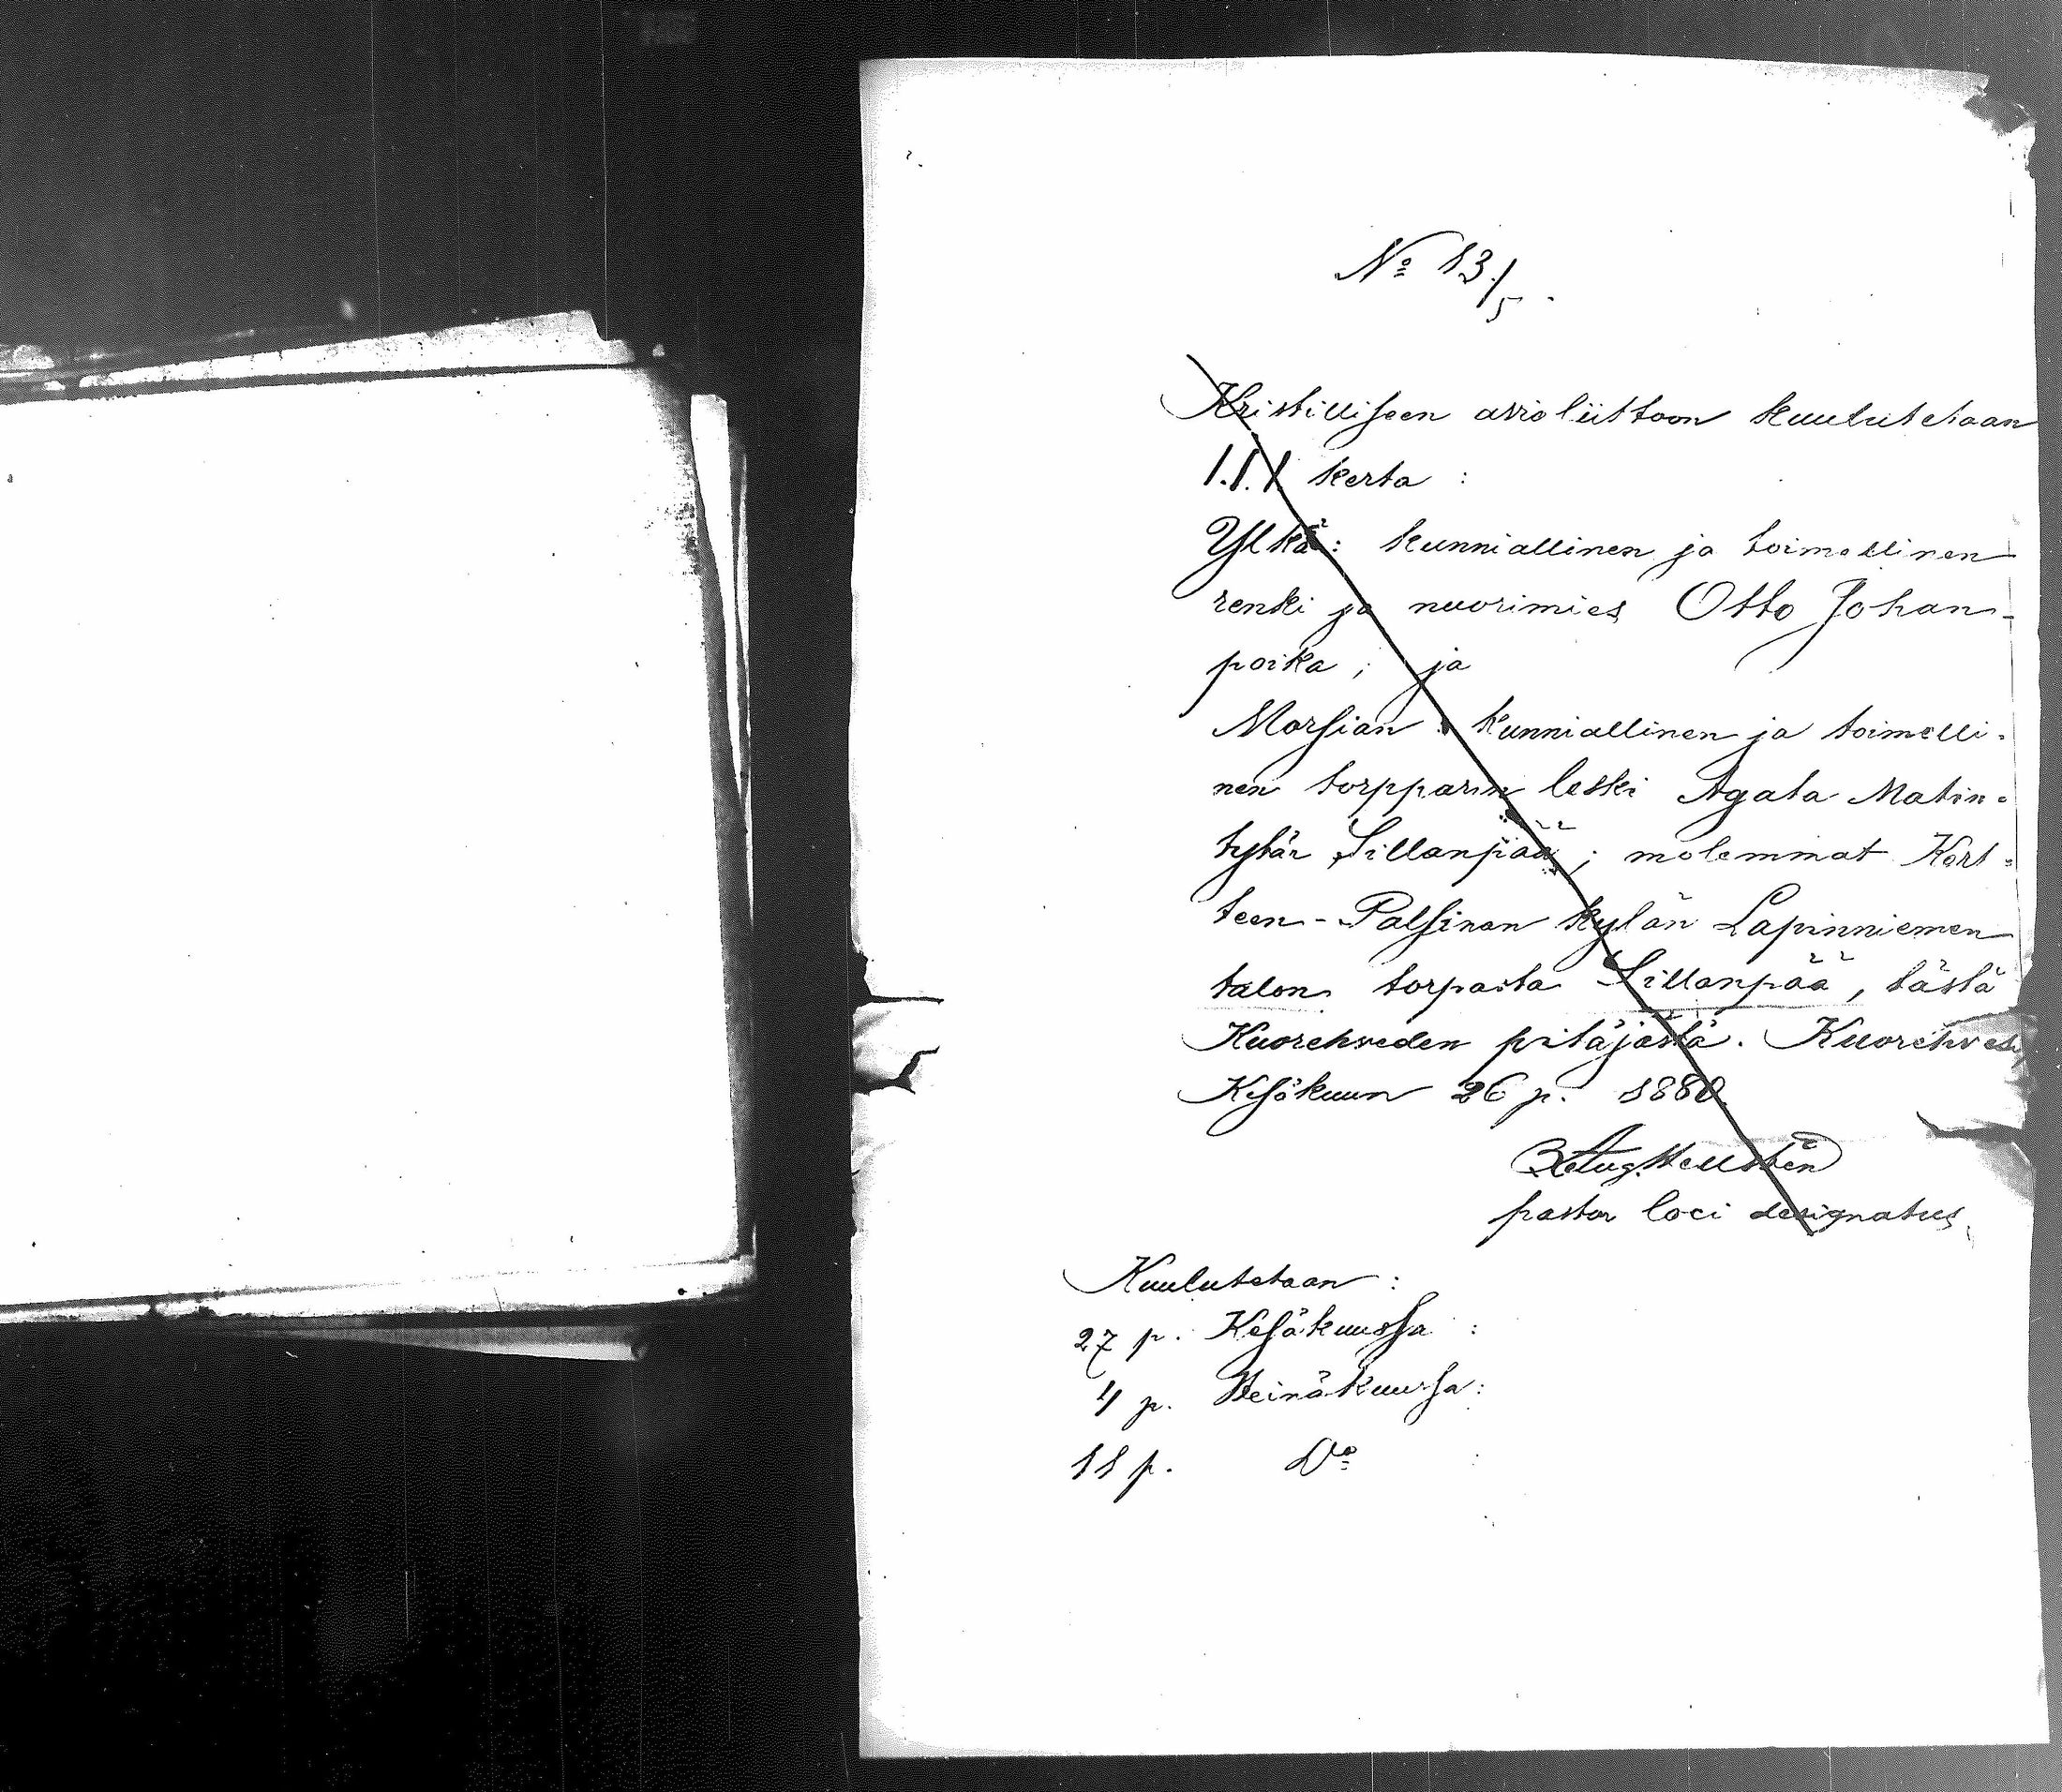 No 13/5.
Kristilliseen avioliittoon kuulutetaan
I.I.I. kerta :
Ylkä : kunniallinen ja toimellinen
renki ja nuorimies Otto Johan-
poika ; ja
Morsian : kunniallinen ja toimelli-
nen torpparin leski Agata Matin-
tytär Sillanpää ; molemmat Kort-
teen-Palsinan kylän Lapinniemen
talon torpasta Sillanpää, tästä
Kuorehveden pitäjästä. Kuorehvesi
Kesäkuun 26 p. 1880.
Aug. Hellstén
pastor loci designatus.
Kuulutetaan :
27 p. Kesäkuussa :
4 p. Heinäkuussa :
11 p. Do :